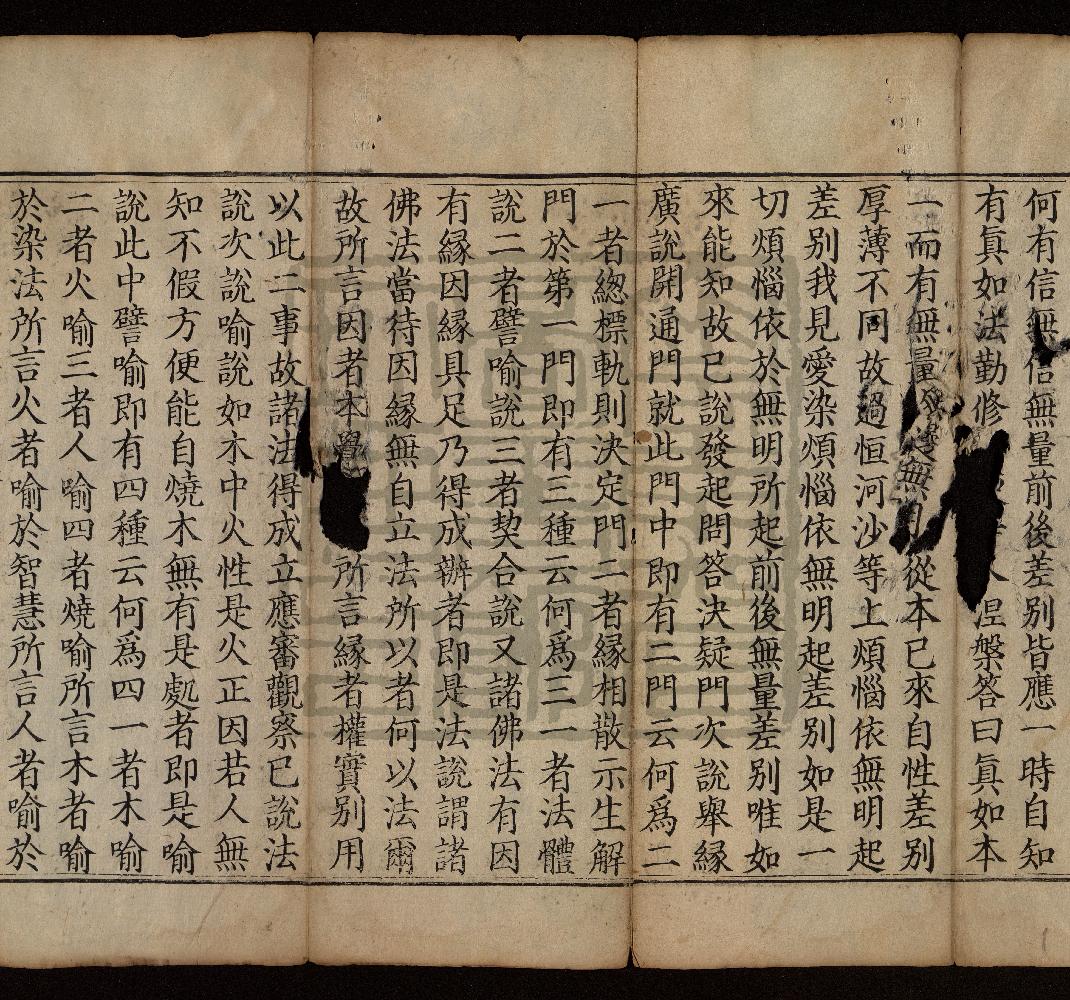 何有信無信無量前後差別皆應一時自知
有眞如法勤修涅槃答曰眞如本
一而有無量無邊無明從本已來自性差別
厚薄不同故過恒河沙等上煩惱依無明起
差別我見愛染煩惱依無明起差別如是一
切煩惱依於無明所起前後無量差別唯如
來能知故已說發起問答決疑門次說舉緣
廣說開通門就此門中即有二門云何爲二
一者總標軌則決定門二者緣相散示生解
門於第一門即有三種云何爲三一者法體
說二者譬喻說三者契合說又諸佛法有因
有緣因緣具足乃得成辦者即是法說謂諸
佛法當待因緣無自立法所以者何以法爾
故所言因者本覺所言緣者權實別用
以此二事故諸法得成立應審觀察已說法
說次說喻說如木中火性是火正因若人無
知不假方便能自燒木無有是處者即是喻
說此中譬喻即有四種云何爲四一者木喻
二者火喻三者人喻四者燒喻所言木者喻
於染法所言火者喻於智慧所言人者喻於